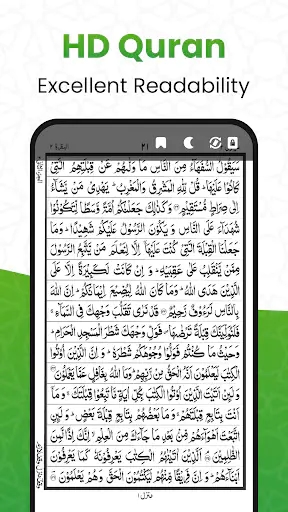 HD Quran
Excellent Readability
البقرة ٢
٢١
سَيَقُوْلُ السُّفَهَآءُ مِنَ النَّاسِ مَا وَلّٰىهُمْ عَنْ قِبْلَتِهِمُ الَّتِيْ
كَانُوْا عَلَيْهَا ؕ قُلْ لِّلّٰهِ الْمَشْرِقُ وَالْمَغْرِبُ ؕ يَهْدِيْ مَنْ يَّشَآءُ
اِلٰى صِرَاطٍ مُّسْتَقِيْمٍ ۝ وَكَذٰلِكَ جَعَلْنٰكُمْ اُمَّةً وَّسَطًا لِّتَكُوْنُوْا
شُهَدَآءَ عَلَى النَّاسِ وَ يَكُوْنَ الرَّسُوْلُ عَلَيْكُمْ شَهِيْدًا ؕ وَمَا
جَعَلْنَا الْقِبْلَةَ الَّتِيْ كُنْتَ عَلَيْهَاۤ اِلَّا لِنَعْلَمَ مَنْ يَّتَّبِعُ الرَّسُوْلَ
مِمَّنْ يَّنْقَلِبُ عَلٰى عَقِبَيْهِ ؕ وَ اِنْ كَانَتْ لَكَبِيْرَةً اِلَّا عَلَى
الَّذِيْنَ هَدَى اللّٰهُ ؕ وَمَا كَانَ اللّٰهُ لِيُضِيْعَ اِيْمَانَكُمْ ؕ اِنَّ اللّٰهَ
بِالنَّاسِ لَرَءُوْفٌ رَّحِيْمٌ ۝ قَدْ نَرٰى تَقَلُّبَ وَجْهِكَ فِي السَّمَآءِ ۚ
فَلَنُوَلِّيَنَّكَ قِبْلَةً تَرْضٰىهَا ۪ فَوَلِّ وَجْهَكَ شَطْرَ الْمَسْجِدِ الْحَرَامِ ؕ
وَحَيْثُ مَا كُنْتُمْ فَوَلُّوْا وُجُوْهَكُمْ شَطْرَهٗ ؕ وَ اِنَّ الَّذِيْنَ اُوْتُوا
الْكِتٰبَ لَيَعْلَمُوْنَ اَنَّهُ الْحَقُّ مِنْ رَّبِّهِمْ ؕ وَمَا اللّٰهُ بِغَافِلٍ عَمَّا يَعْمَلُوْنَ ۝
وَلَئِنْ اَتَيْتَ الَّذِيْنَ اُوْتُوا الْكِتٰبَ بِكُلِّ اٰيَةٍ مَّا تَبِعُوْا قِبْلَتَكَ ۚ وَمَاۤ
اَنْتَ بِتَابِعٍ قِبْلَتَهُمْ ۚ وَمَا بَعْضُهُمْ بِتَابِعٍ قِبْلَةَ بَعْضٍ ؕ وَلَئِنِ
اتَّبَعْتَ اَهْوَآءَهُمْ مِّنْۢ بَعْدِ مَا جَآءَكَ مِنَ الْعِلْمِ ۙ اِنَّكَ اِذًا لَّمِنَ
الظّٰلِمِيْنَ ۝ اَلَّذِيْنَ اٰتَيْنٰهُمُ الْكِتٰبَ يَعْرِفُوْنَهٗ كَمَا يَعْرِفُوْنَ
اَبْنَآءَهُمْ ؕ وَ اِنَّ فَرِيْقًا مِّنْهُمْ لَيَكْتُمُوْنَ الْحَقَّ وَهُمْ يَعْلَمُوْنَ ۝
منزل ١